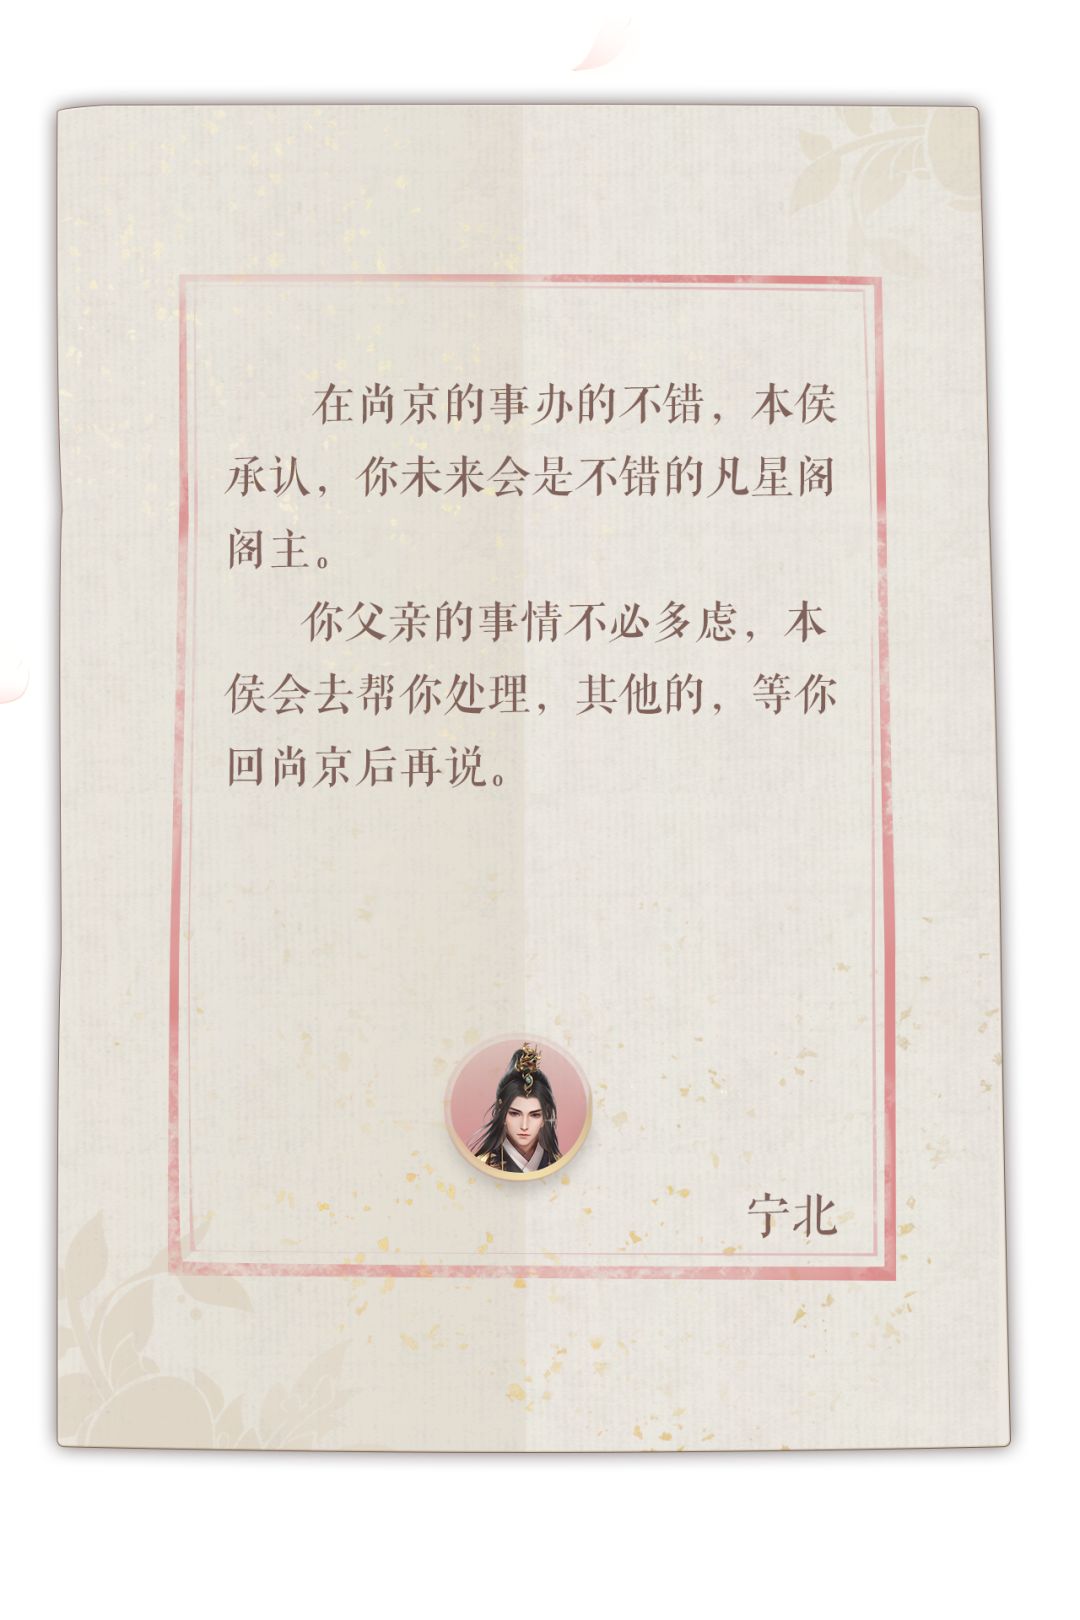 在尚京的事办的不错，本侯
承认，你未来会是不错的凡星阁
阁主。
你父亲的事情不必多虑，本
侯会去帮你处理，其他的，等你
回尚京后再说。
宁北